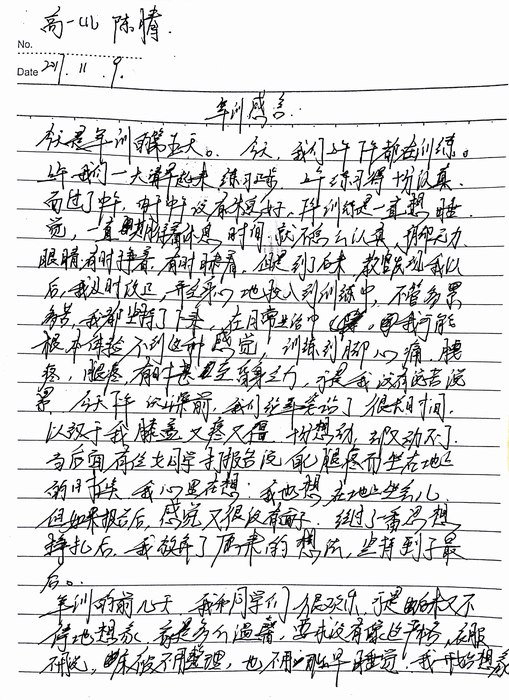 高一 陈腾
No.
Date 2017.11.9.
军训感言.
今天是军训的第五天。今天,我们上午下午都在训练。
上午我们一大清早起来练习跑步,上午练习得十分认真,
而过了中午,由于中午没有休息好,下午训练是一直想睡
觉,一直期盼着休息时间,就不怎么认真,拐脚无力,
眼睛有时睁着,有时睡着,但是到了后来,教官发现我以
后,我及时改正,并全身心地投入到训练中,不管多累
多苦,我都坚持了下来,在日常生活中,我可能
根本体验不到这种感觉,训练到脚心痛,腰
疼,腿疼,有时甚至全身乏力,于是我没有说苦说
累,今天下午,我们练军姿站了很长时间,
以致于我膝盖又疼又僵,十分想动,却又动不了.
当后面有位女同学打报告说自己腿疼而坐在地上
的时候,我心里在想:我也想在地上坐会儿,
但如果报告后,感觉又很没有面子.经过了一番思想
挣扎后,我放弃了原来的想法,坚持到了最
后。
军训的前几天,我和同学们很欢乐,于是后来又不
停地想家,家是多么温馨,要求没有像这严格,衣服
不洗,床被不用整理,也不用那么早睡觉.我开始想家